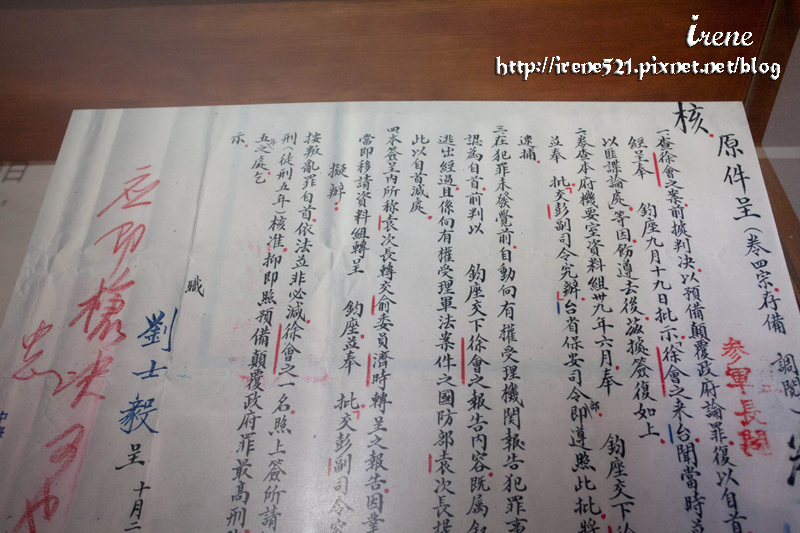 irene
http://irene521.pixnet.net/blog
核
原件呈(卷四宗存備
調閱
參軍長閱
一、查徐會之案前披判決以預備顛覆政府論罪復以自首
經呈奉 鈞座九月十九日批示徐會之來台聞當時並
以匪諜論處等因飭遵去後茲據簽復如上
二、卷查本府機要室資料組卅九年六月奉 鈞座交下徐
並奉 批交彭副司令究辦台省保安司令部即遵照此批將
逮捕
三、在犯罪未發覺前自動向有權受理機關報告犯罪事
認為自首前判以 鈞座交下徐會之報告內容既屬
逃出經過且係向有權受理軍法案件之國防部袁次長提
此以自首減處
四、本簽呈內所稱袁次長轉交俞委員濟時轉呈之報告因
當即移請資料組轉呈 鈞座並奉 批交彭副司令究
擬辦
按叛亂罪自首依法並非必減徐會之一名照上簽所請
刑(徒刑五年)核准抑即照預備顛覆政府罪最高刑
五年之處乞
示
職
劉士毅 呈 十月二
應即槍決可也